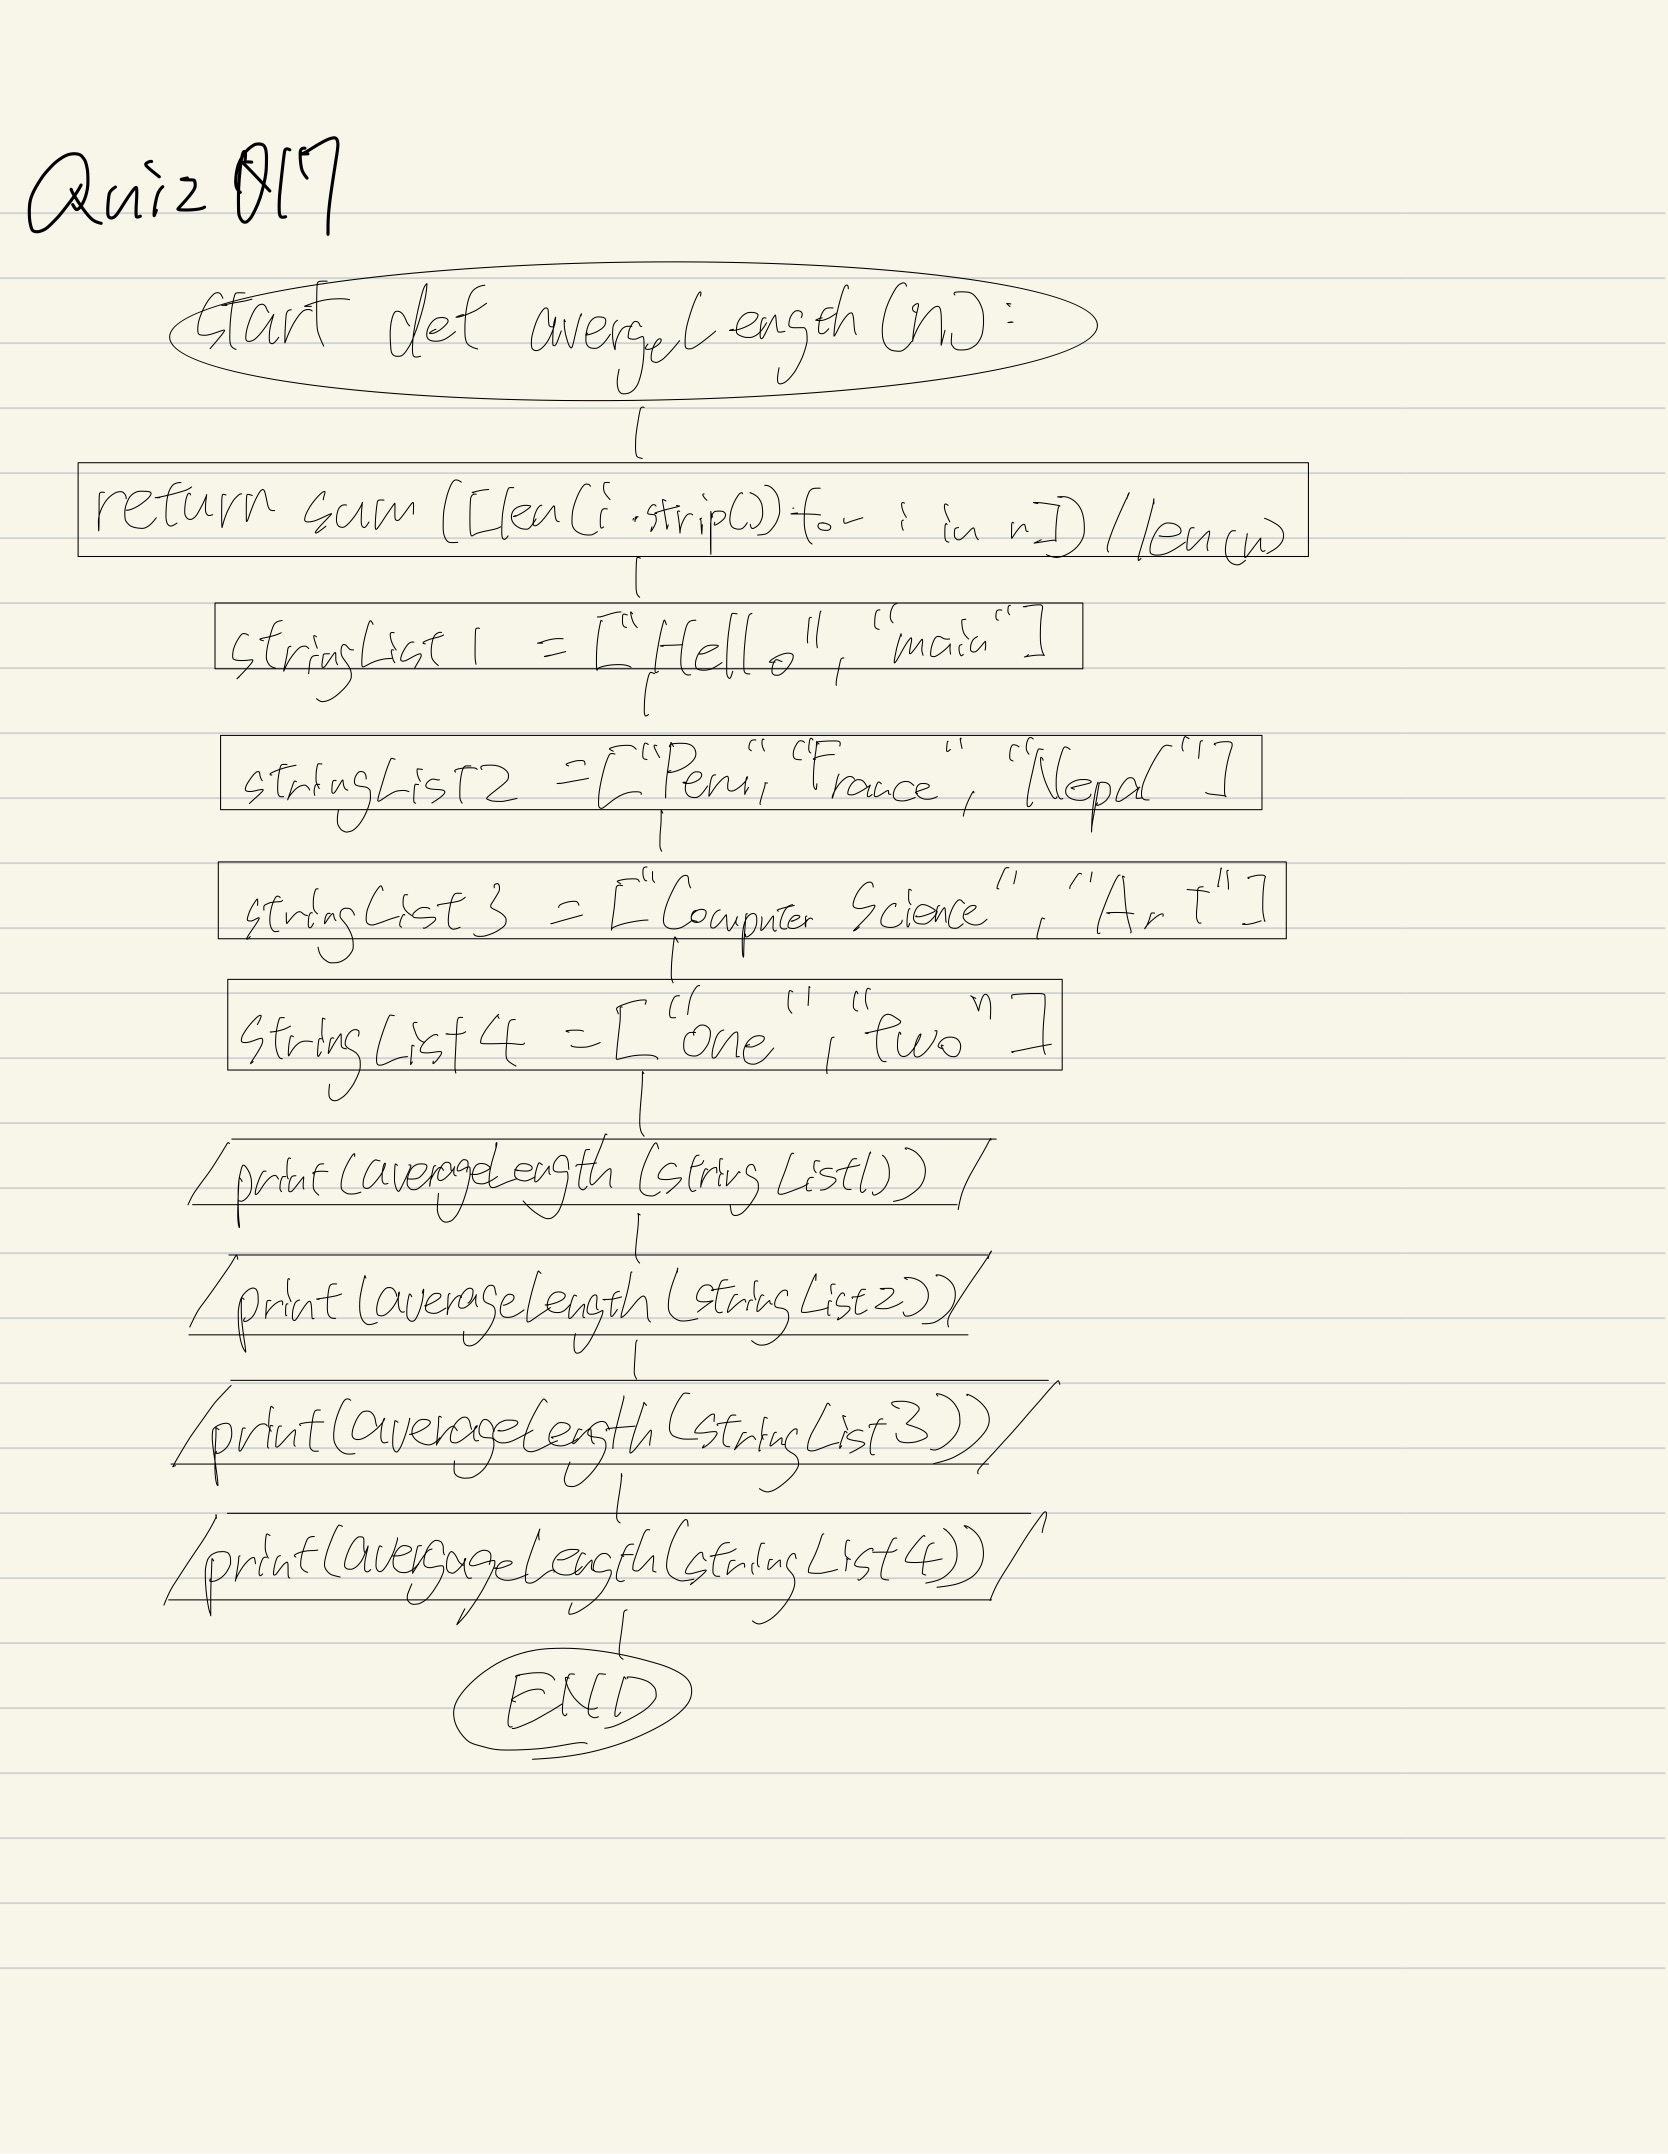 Quiz 017
start def avergeLength(n):
return sum([len(i.strip()) for i in n]) / len(n)
stringList1 = ["Hello", "main"]
stringList2 = ["Peru", "France", "Nepal"]
stringList3 = ["Computer Science", "Art"]
stringList4 = ["one", "two"]
print(averageLength(stringList1))
print(averageLength(stringList2))
print(averageLength(stringList3))
print(avergageLength(stringList4))
END